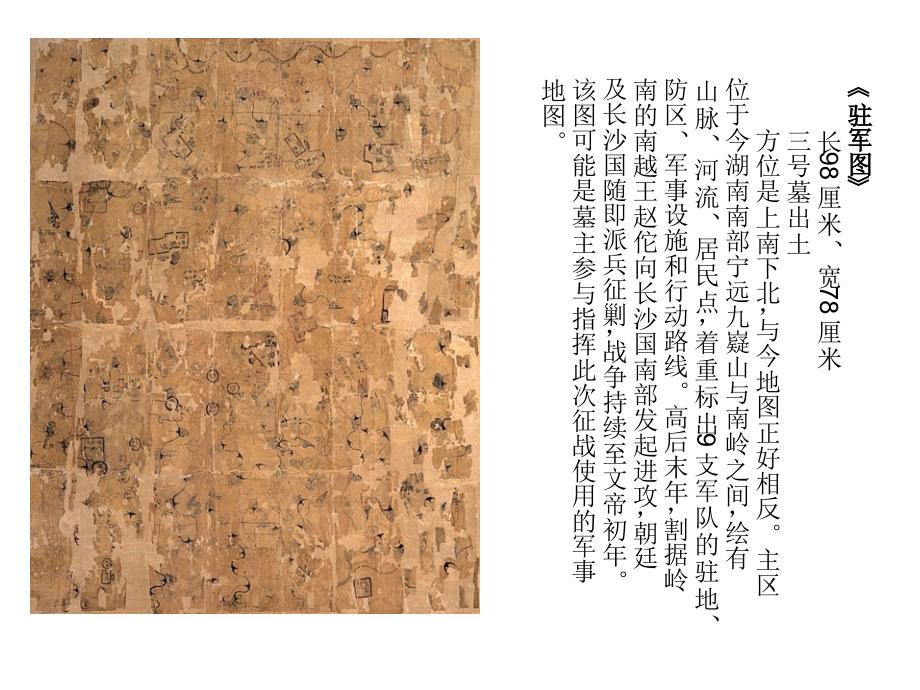 《驻军图》
长98厘米、宽78厘米
三号墓出土
方位是上南下北,与今地图正好相反。主区
位于今湖南南部宁远九嶷山与南岭之间,绘有
山脉、河流、居民点,着重标出9支军队的驻地、
防区、军事设施和行动路线。高后末年,割据岭
南的南越王赵佗向长沙国南部发起进攻,朝廷
及长沙国随即派兵征剿,战争持续至文帝初年。
该图可能是墓主参与指挥此次征战使用的军事
地图。